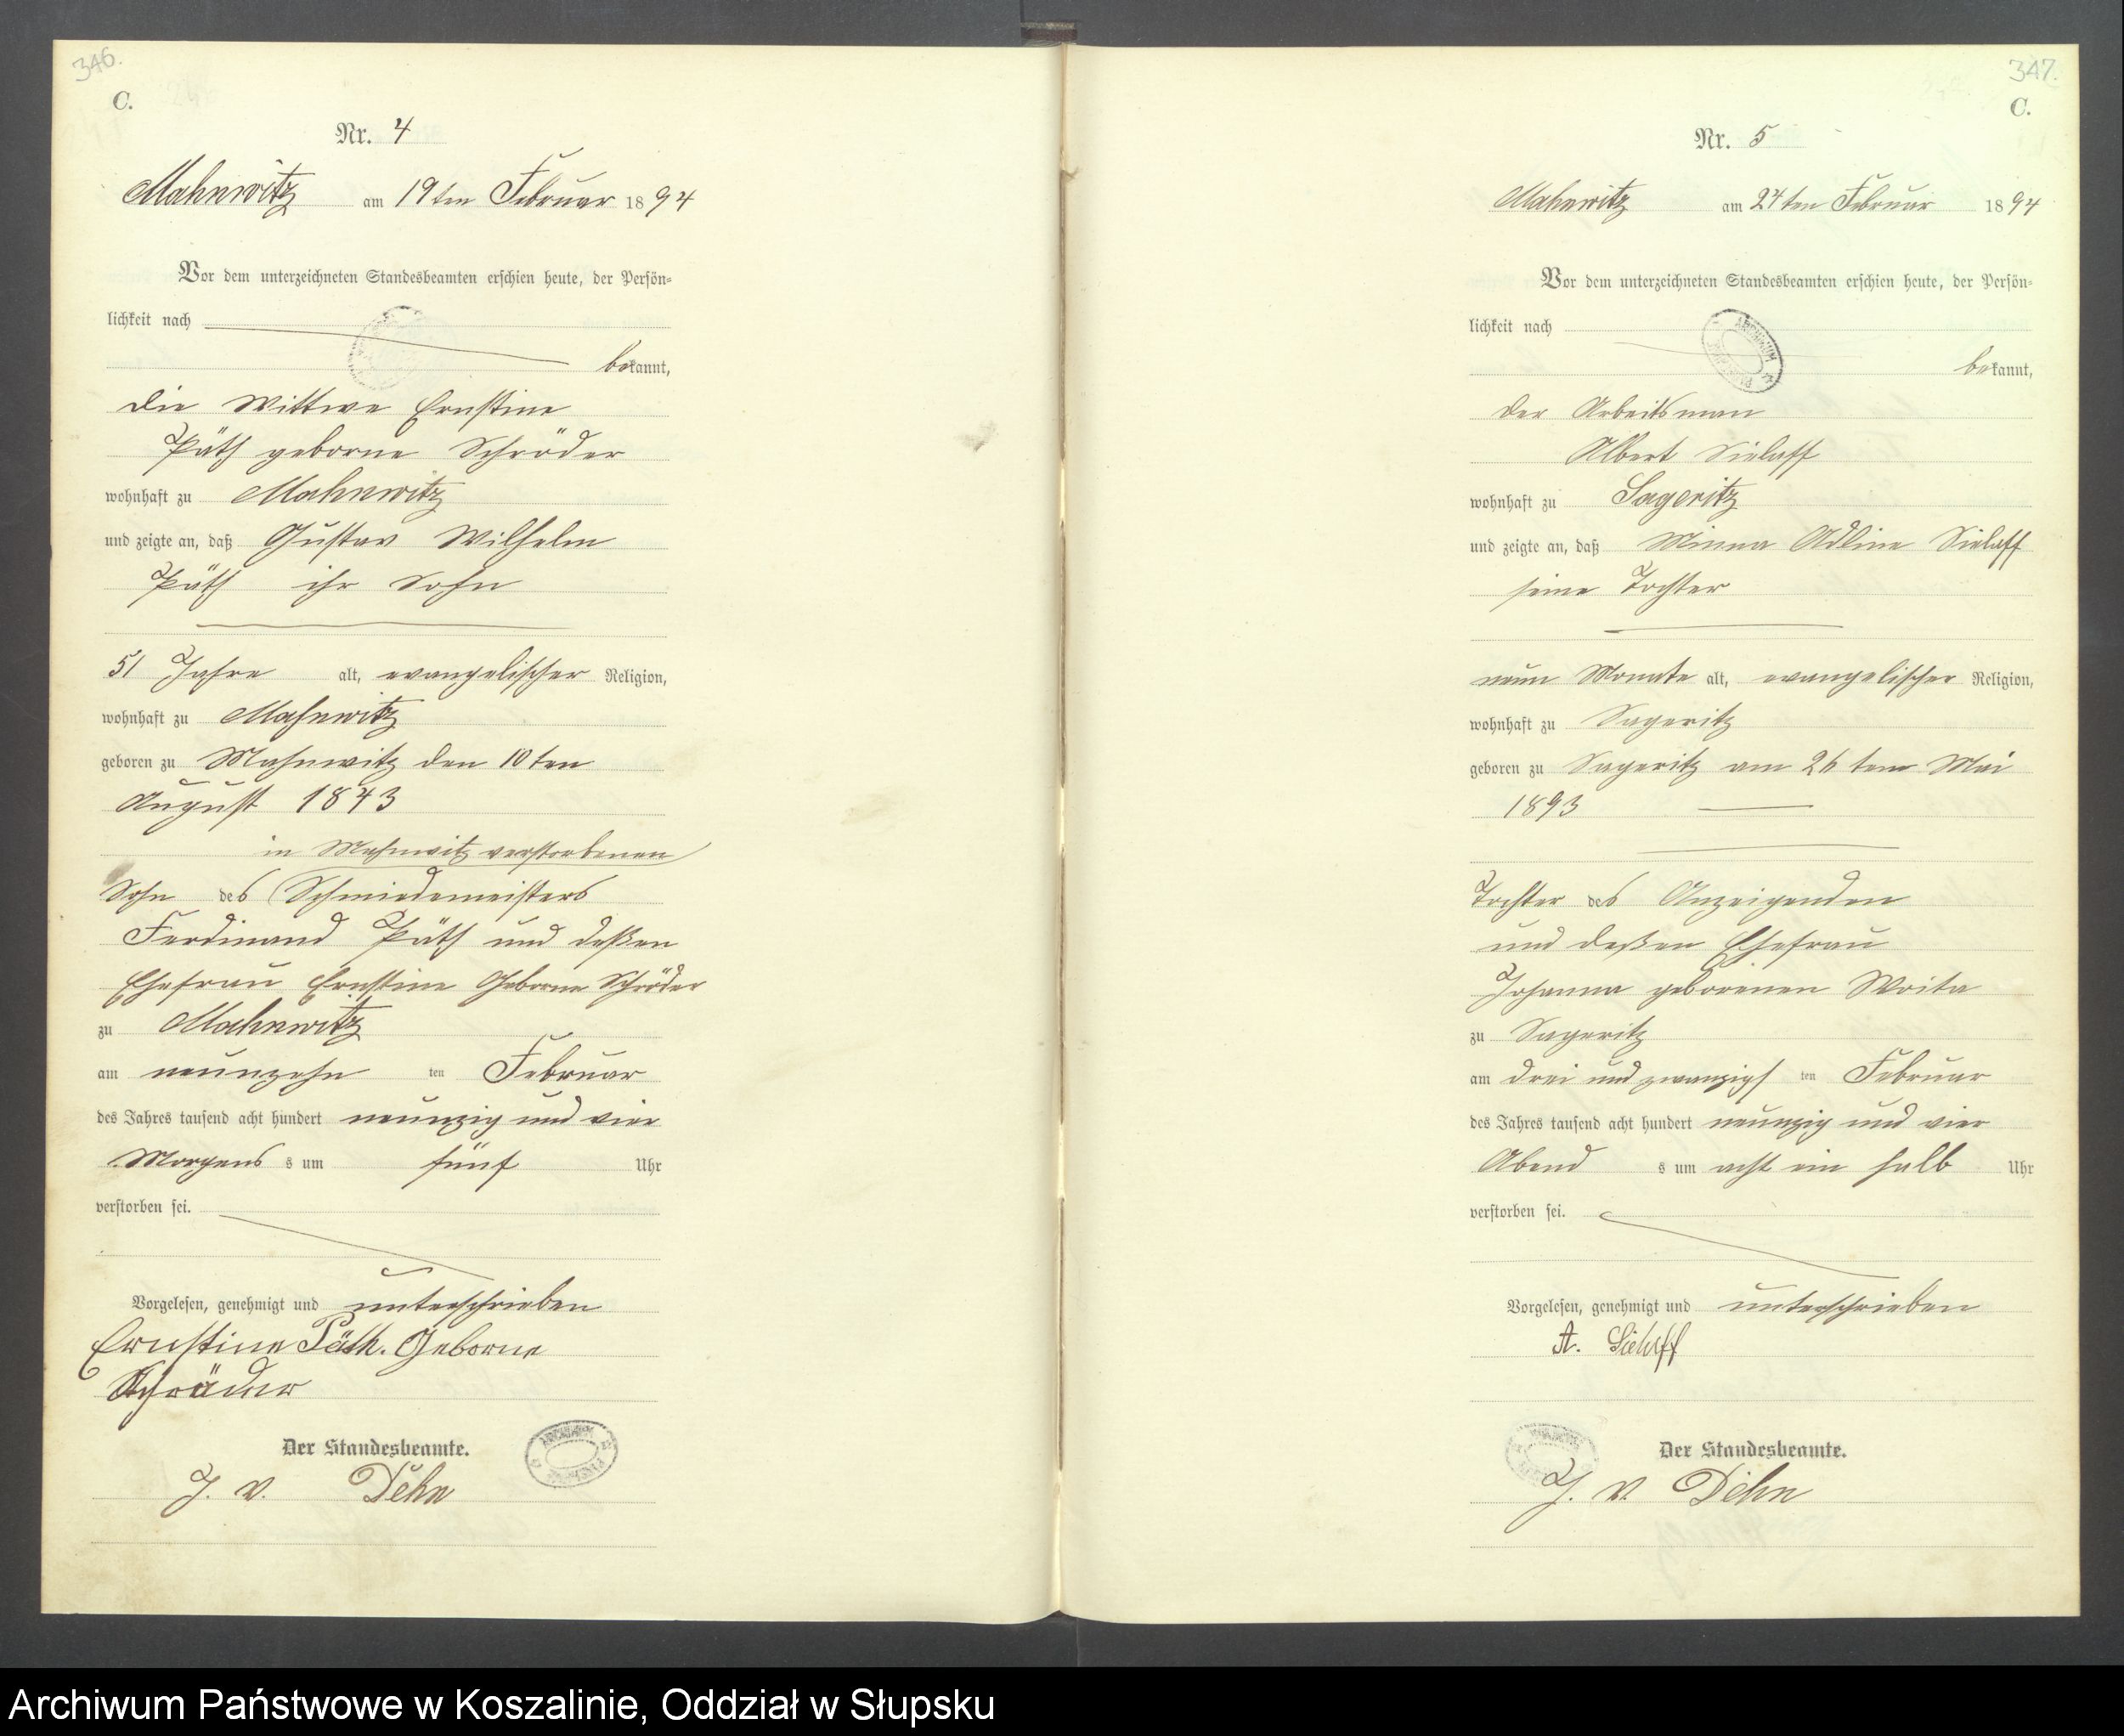 346.
C.
Nr. 4
Mahnwitz am 19ten Februar 1894
Vor dem unterzeichneten Standesbeamten erschien heute, der Persön-
lichkeit nach
bekannt,
die Wittwe Ernstine
Päth geborne Schröder
wohnhaft zu Mahnwitz
und zeigte an, daß Gustav Wilhelm
Päth ihr Sohn
51 Jahre alt, evangelischer Religion,
wohnhaft zu Mahnwitz
geboren zu Mahnwitz den 10ten
August 1843
in Mahnwitz verstorbenen
Sohn des Schmiedemeisters
Ferdinand Päth und deßen
Ehefrau Ernstine Geborne Schröder
zu Mahnwitz
am neunzehn ten Februar
des Jahres tausend acht hundert neunzig und vier
Morgens s um fünf Uhr
verstorben sei.
Vorgelesen, genehmigt und unterschrieben
Ernstine Päth. Geborne
Schröder
Der Standesbeamte.
J. V. Dehn
347.
C.
Nr. 5
Mahnwitz am 24ten Februar 1894
Vor dem unterzeichneten Standesbeamten erschien heute, der Persön-
lichkeit nach
bekannt,
der Arbeitsman
Albert Sielaff
wohnhaft zu Sageritz
und zeigte an, daß Minna Adline Sielaff
seine Tochter
neun Monate alt, evangelischer Religion,
wohnhaft zu Sageritz
geboren zu Sageritz am 26 tem Mai
1893
Tochter des Anzeigenden
und deßen Ehefrau
Johanna geborenen Woita
zu Sageritz
am drei und zwanzigs ten Februar
des Jahres tausend acht hundert neunzig und vier
Abend s um acht ein halb Uhr
verstorben sei.
Vorgelesen, genehmigt und unterschrieben
A. Sielaff
Der Standesbeamte.
J. V. Dehn
Archiwum Państwowe w Koszalinie, Oddział w Słupsku